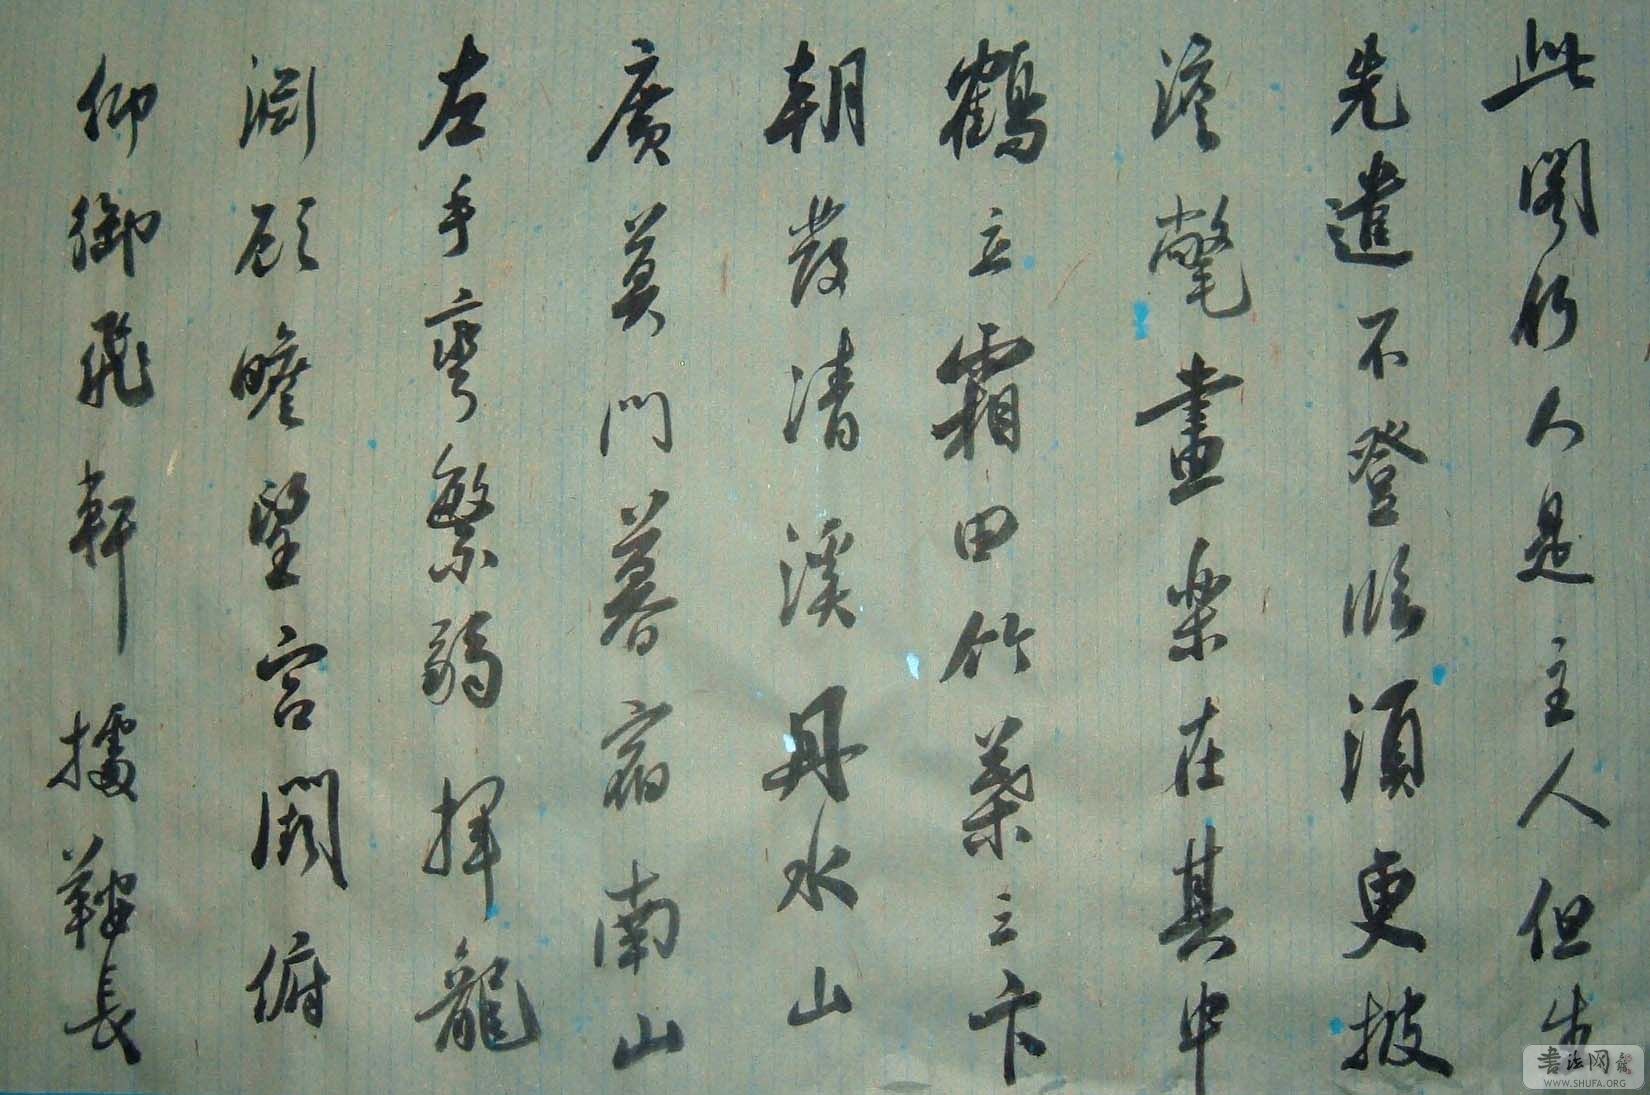 此閣所人是主人但
先遣不登臨須更披
氅畫樂在其中
鶴立霜田竹葉三
朝發清溪丹水山
廣莫門暮宿南山
左手彎繁弱揮龍
淵顧瞻望宮闕俯
仰御飛軒據鞍長
书法网
WWW.SHUFA.ORG